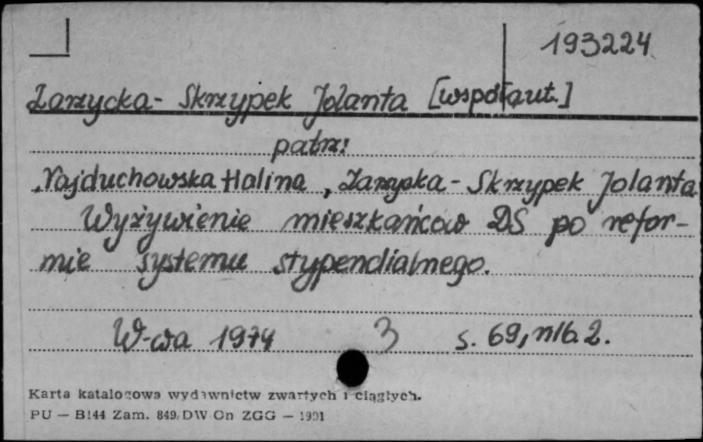 193224
Zarzycka - Skrzypek Jolanta [współaut.]
patrz:
Najduchowska Halina, Zarzycka - Skrzypek Jolanta
Wyżywienie mieszkańców DS po refor-
mie systemu stypendialnego.
W-wa 1974 3 s. 69, nlb. 2.
Karta katalogowa wydawnictw zwartych i ciągłych.
PU — B144 Zam. 849 DW On ZGG — 1991